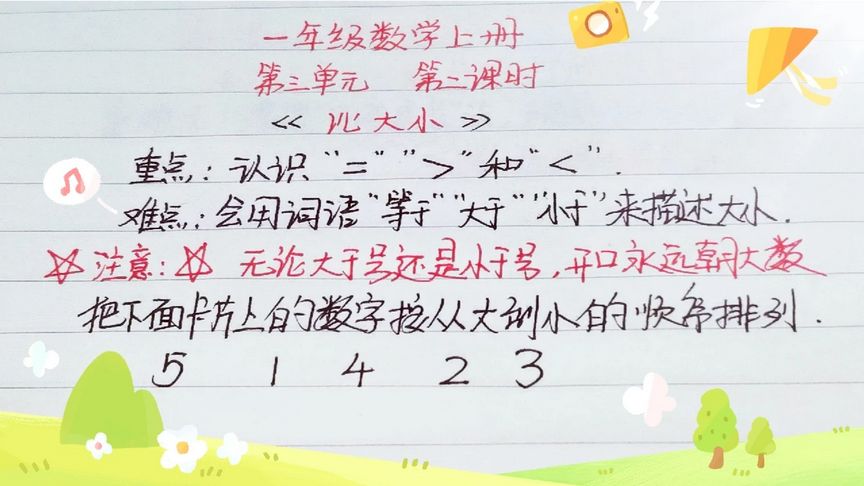 一年级数学上册
第三单元 第二课时
《比大小》
重点：认识“=”“>”和“<”.
难点：会用词语“等于”“大于”“小于”来描述大小.
☆注意：☆ 无论大于号还是小于号，开口永远朝大数
把下面卡片上的数字按从大到小的顺序排列.
5 1 4 2 3